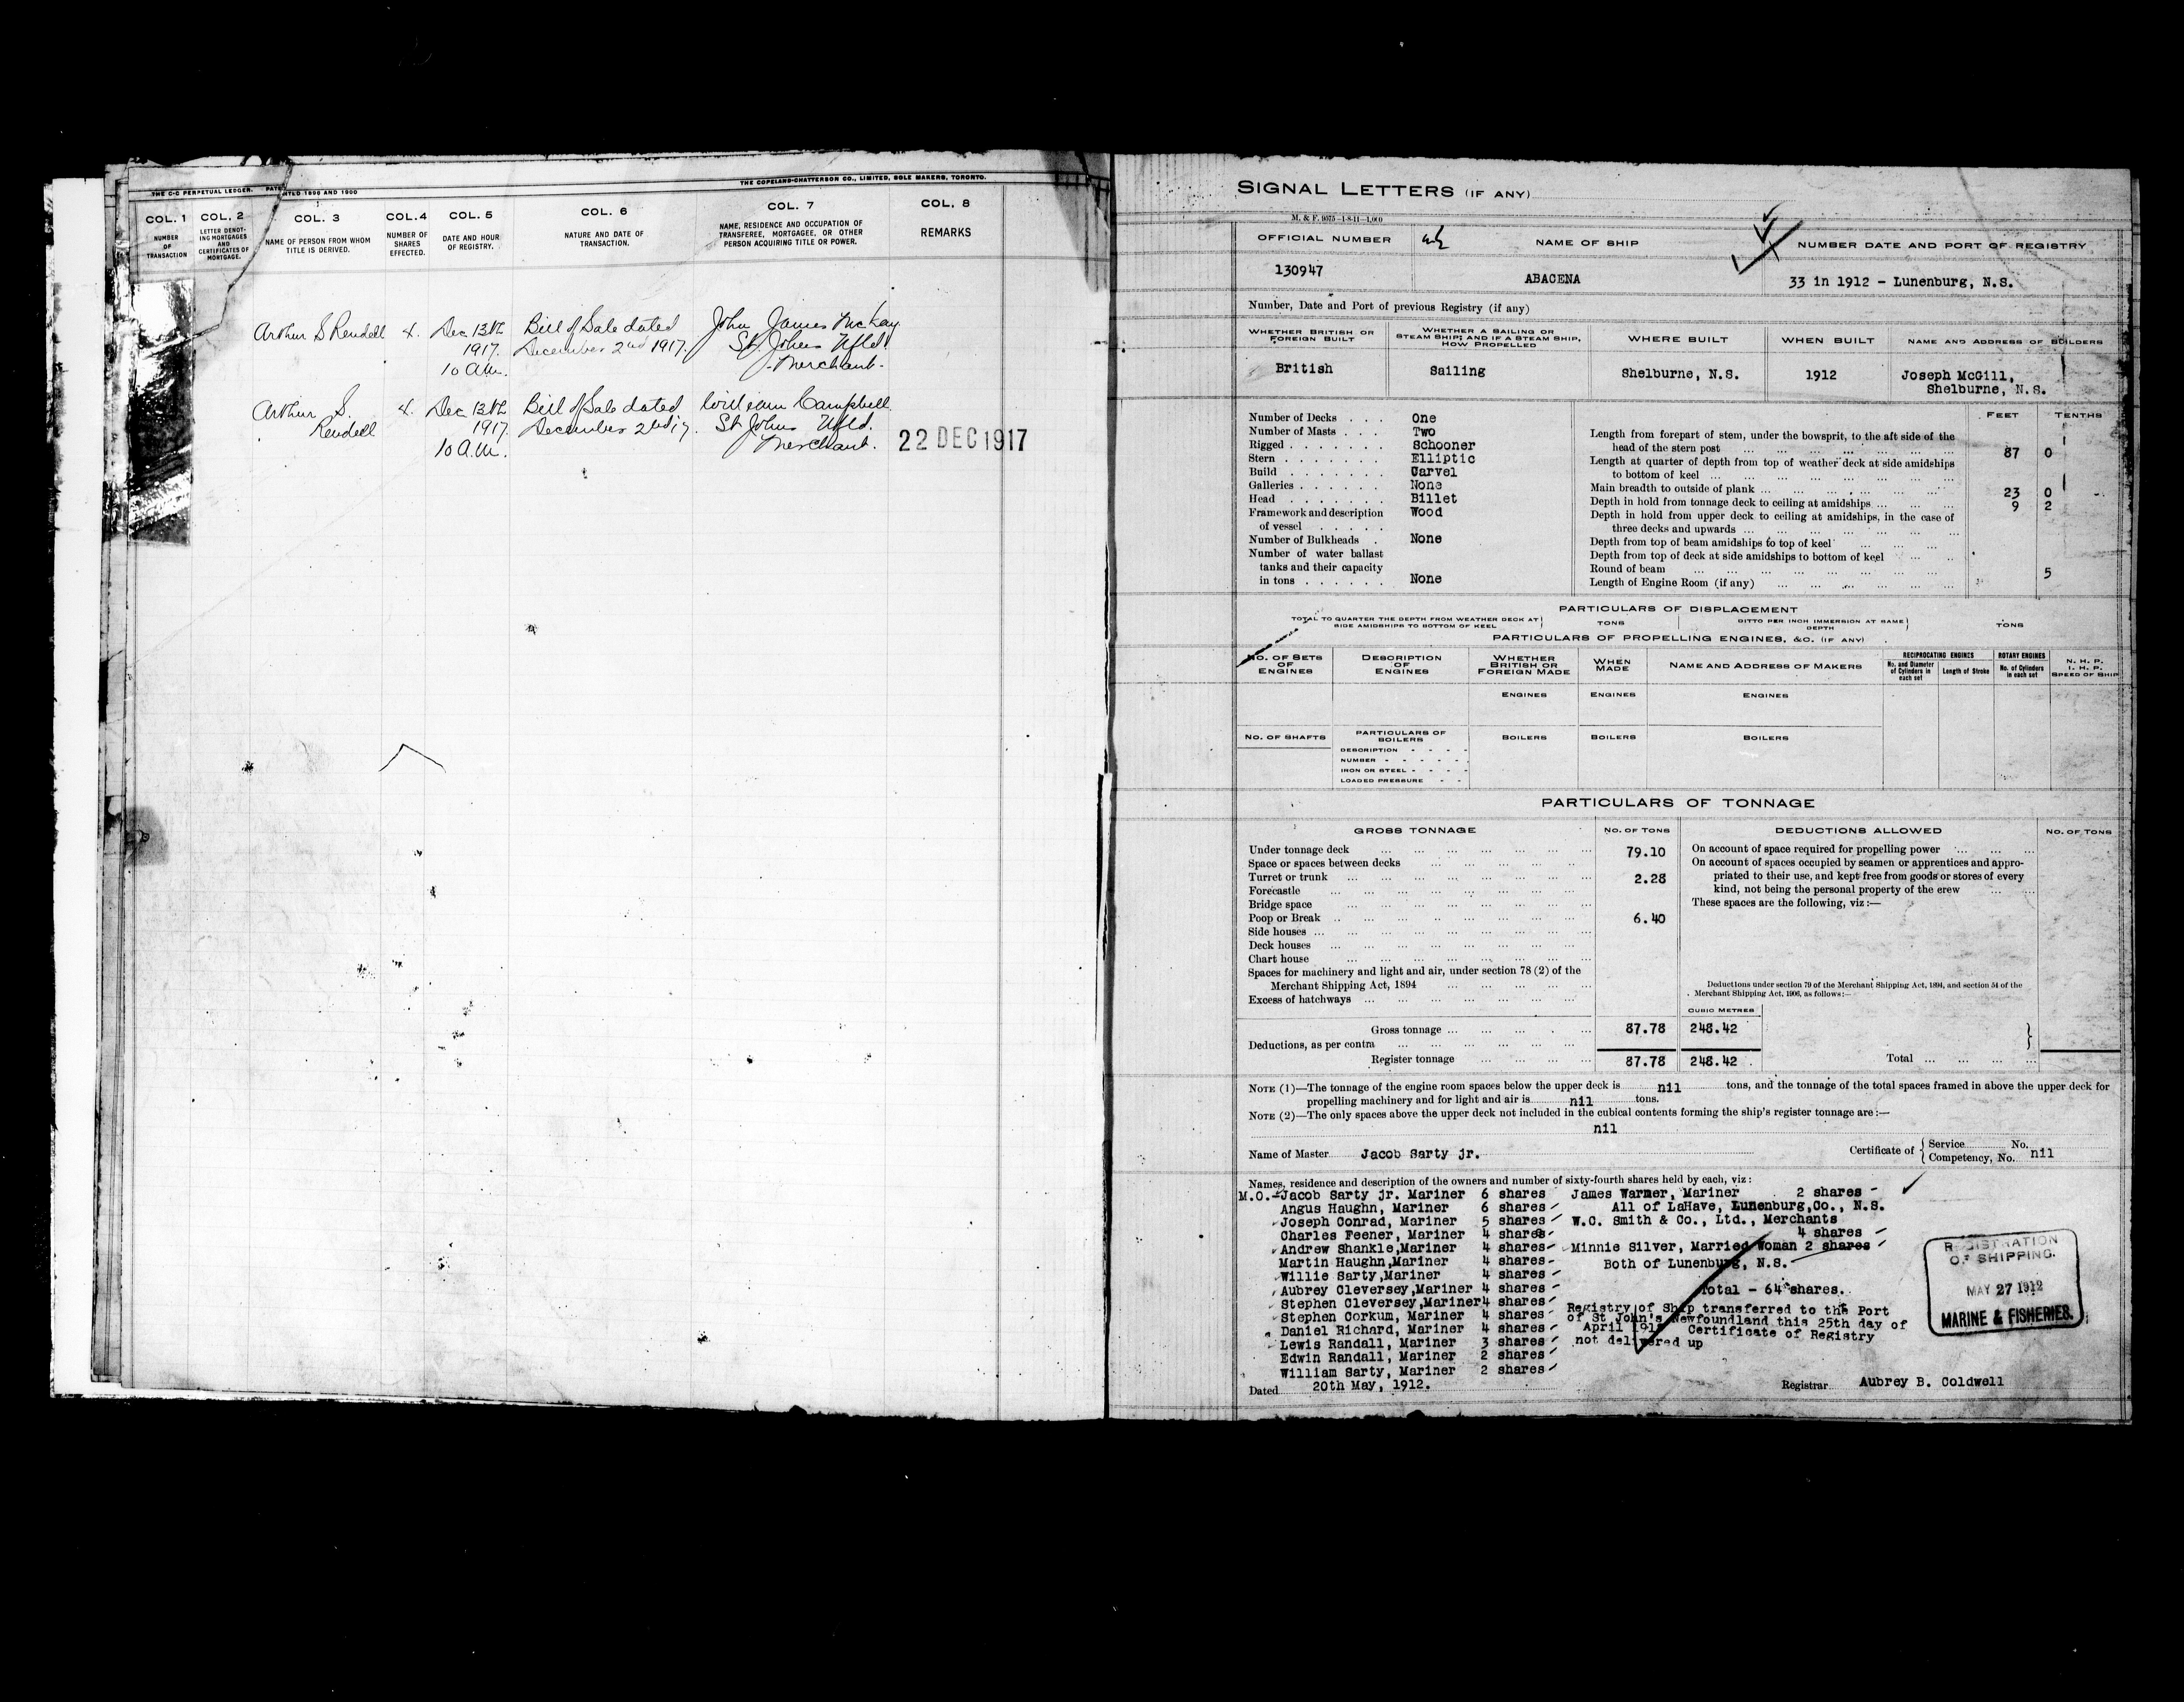 THE C-C PERPETUAL LEDGER. PATENTED 1896 AND 1900
THE COPELAND-CHATTERSON CO., LIMITED, SOLE MAKERS, TORONTO.
COL. 1 COL. 2 COL. 3 COL. 4 COL. 5 COL. 6 COL. 7 COL. 8
NUMBER OF TRANSACTION
LETTER DENOTING MORTGAGES AND CERTIFICATES OF MORTGAGE.
NAME OF PERSON FROM WHOM TITLE IS DERIVED.
NUMBER OF SHARES EFFECTED.
DATE AND HOUR OF REGISTRY.
NATURE AND DATE OF TRANSACTION.
NAME, RESIDENCE AND OCCUPATION OF TRANSFEREE, MORTGAGEE, OR OTHER PERSON ACQUIRING TITLE OR POWER.
REMARKS
Arthur S Rendell 4. Dec 13th Bill of Sale dated John James McKay
1917. December 2nd 1917. St Johns Nfld.
10 a.m. Merchant.
Arthur S. 4. Dec 13th Bill of Sale dated William Campbell
Rendell 1917. December 2nd 17. St Johns Nfld.
10 a.m. Merchant. 22 DEC 1917
SIGNAL LETTERS (IF ANY)
M. & F. 9375-1-8-11-1,000
OFFICIAL NUMBER NAME OF SHIP NUMBER DATE AND PORT OF REGISTRY
130947 ABACENA 33 in 1912 - Lunenburg, N.S.
Number, Date and Port of previous Registry (if any)
WHETHER BRITISH OR FOREIGN BUILT
WHETHER A SAILING OR STEAM SHIP; AND IF A STEAM SHIP, HOW PROPELLED
WHERE BUILT WHEN BUILT NAME AND ADDRESS OF BUILDERS
British Sailing Shelburne, N.S. 1912 Joseph McGill,
Shelburne, N.S.
FEET TENTHS
Number of Decks One
Number of Masts Two
Rigged Schooner
Stern Elliptic
Build Carvel
Galleries None
Head Billet
Framework and description
of vessel Wood
Number of Bulkheads None
Number of water ballast
tanks and their capacity
in tons None
Length from forepart of stem, under the bowsprit, to the aft side of the
head of the stern post 87 0
Length at quarter of depth from top of weather deck at side amidships
to bottom of keel
Main breadth to outside of plank 23 0
Depth in hold from tonnage deck to ceiling at amidships 9 2
Depth in hold from upper deck to ceiling at amidships, in the case of
three decks and upwards
Depth from top of beam amidships to top of keel
Depth from top of deck at side amidships to bottom of keel
Round of beam 5
Length of Engine Room (if any)
PARTICULARS OF DISPLACEMENT
TOTAL TO QUARTER THE DEPTH FROM WEATHER DECK AT SIDE AMIDSHIPS TO BOTTOM OF KEEL } TONS DITTO PER INCH IMMERSION AT SAME DEPTH } TONS
PARTICULARS OF PROPELLING ENGINES, &C. (IF ANY)
NO. OF SETS OF ENGINES
DESCRIPTION OF ENGINES
WHETHER BRITISH OR FOREIGN MADE
WHEN MADE
NAME AND ADDRESS OF MAKERS
RECIPROCATING ENGINES
No. and Diameter of Cylinders in each set
Length of Stroke
ROTARY ENGINES
No. of Cylinders in each set
N. H. P.
I. H. P.
SPEED OF SHIP
ENGINES ENGINES ENGINES
NO. OF SHAFTS PARTICULARS OF BOILERS BOILERS BOILERS BOILERS
DESCRIPTION
NUMBER
IRON OR STEEL
LOADED PRESSURE
PARTICULARS OF TONNAGE
GROSS TONNAGE NO. OF TONS DEDUCTIONS ALLOWED NO. OF TONS
Under tonnage deck 79.10
Space or spaces between decks
Turret or trunk 2.28
Forecastle
Bridge space
Poop or Break 6.40
Side houses
Deck houses
Chart house
Spaces for machinery and light and air, under section 78 (2) of the
Merchant Shipping Act, 1894
Excess of hatchways
On account of space required for propelling power
On account of spaces occupied by seamen or apprentices and appro-
priated to their use, and kept free from goods or stores of every
kind, not being the personal property of the crew
These spaces are the following, viz:—
Deductions under section 79 of the Merchant Shipping Act, 1894, and section 54 of the
Merchant Shipping Act, 1906, as follows:—
CUBIC METRES
Gross tonnage 87.78 248.42
Deductions, as per contra
Register tonnage 87.78 248.42 Total
NOTE (1)—The tonnage of the engine room spaces below the upper deck is nil tons, and the tonnage of the total spaces framed in above the upper deck for
propelling machinery and for light and air is nil tons.
NOTE (2)—The only spaces above the upper deck not included in the cubical contents forming the ship's register tonnage are:—
nil
Name of Master Jacob Sarty jr. Certificate of { Service No.
Competency, No. nil
Names, residence and description of the owners and number of sixty-fourth shares held by each, viz:
M.O.-Jacob Sarty jr. Mariner 6 shares
Angus Haughn, Mariner 6 shares
Joseph Conrad, Mariner 5 shares
Charles Feener, Mariner 4 shares
Andrew Shankle,Mariner 4 shares
Martin Haughn,Mariner 4 shares
Willie Sarty,Mariner 4 shares
Aubrey Cleversey,Mariner 4 shares
Stephen Cleversey,Mariner4 shares
Stephen Corkum, Mariner 4 shares
Daniel Richard, Mariner 4 shares
Lewis Randall, Mariner 3 shares
Edwin Randall, Mariner 2 shares
William Sarty, Mariner 2 shares
James Warner, Mariner 2 shares
All of LaHave, Lunenburg,Co., N.S.
W.C. Smith & Co., Ltd., Merchants
4 shares
Minnie Silver, Married Woman 2 shares
Both of Lunenburg, N.S.
Total - 64 shares.
Registry of Ship transferred to the Port
of St John's Newfoundland this 25th day of
April Certificate of Registry
not delivered up
REGISTRATION
OF SHIPPING.
MAY 27 1912
MARINE & FISHERIES.
Dated 20th May, 1912. Registrar Aubrey B. Coldwell